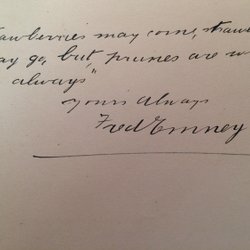 may come, straw
go, but, prunes are w
always"
Yours Always
Fred Emney